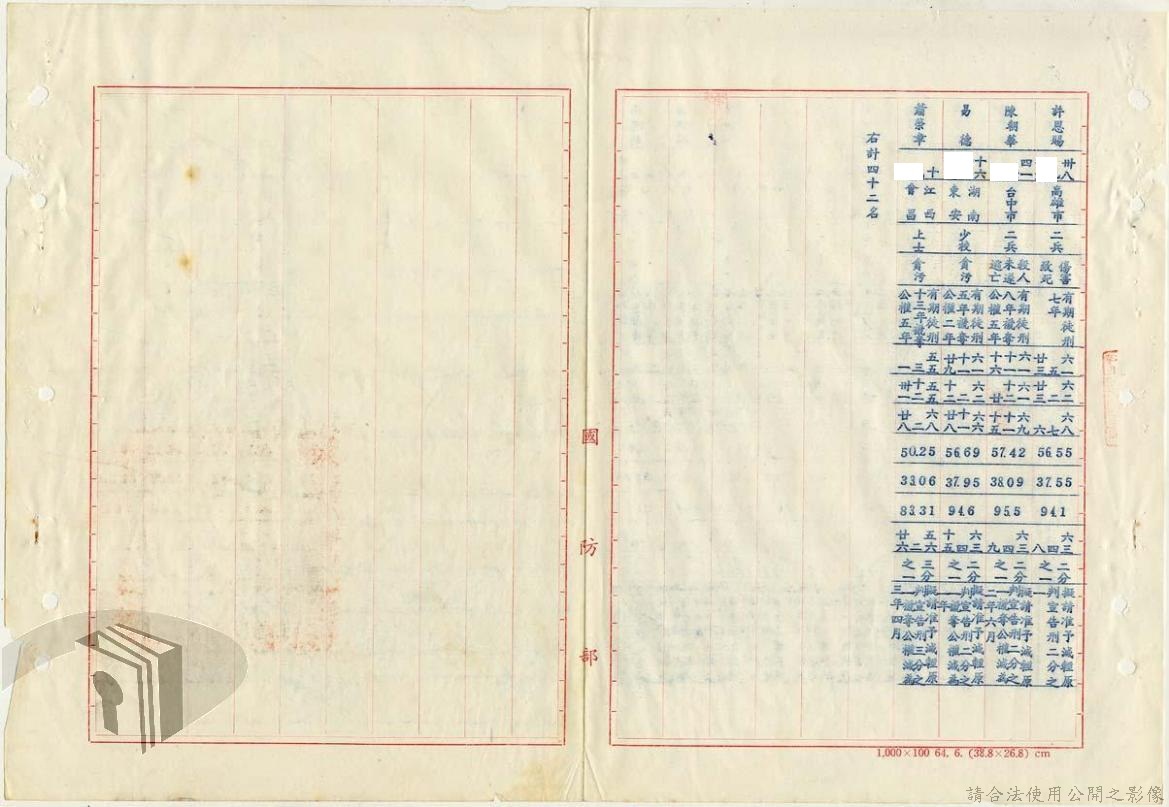 許恩賜
卅八
高雄市
二兵
傷害
致死
有期徒刑
七年
六一
五
廿三
六二
二
廿三
六八
七
六
56.55
37.55
94.1
六三
四
八
二分
之一
擬請准予減輕原
判宣告刑二分之
一
陳朝華
四一
台中市
二兵
殺人
未遂
逃亡
有期徒刑
八年褫奪
公權五年
六一
十一
十六
六一
十二
廿
六九
十一
十五
57.42
38.09
95.5
六三
四
九
二分
之一
擬請准予減輕原
判宣告刑二分之
一褫奪公權減為
二年六月
易德
十六
湖南
東安
少校
貪污
有期徒刑
五年褫奪
公權二年
六一
十一
廿九
六二
二
十二
六六
十一
廿八
56.69
37.95
94.6
六三
四
十五
二分
之一
擬請准予減輕原
判宣告刑二分之
一褫奪公權減為
一年
蕭榮章
十
江西
會昌
上士
貪污
有期徒刑
十三年褫奪
公權五年
五五
三
一
五五
十二
卅一
六八
二
廿八
50.25
33.06
83.31
五六
二
廿六
三分
之一
擬請准予減輕原
判宣告刑三分之
一褫奪公權減為
三年四月
右計四十二名
國防部
1,000×100 64. 6. (38.8×26.8) cm
請合法使用公開之影像